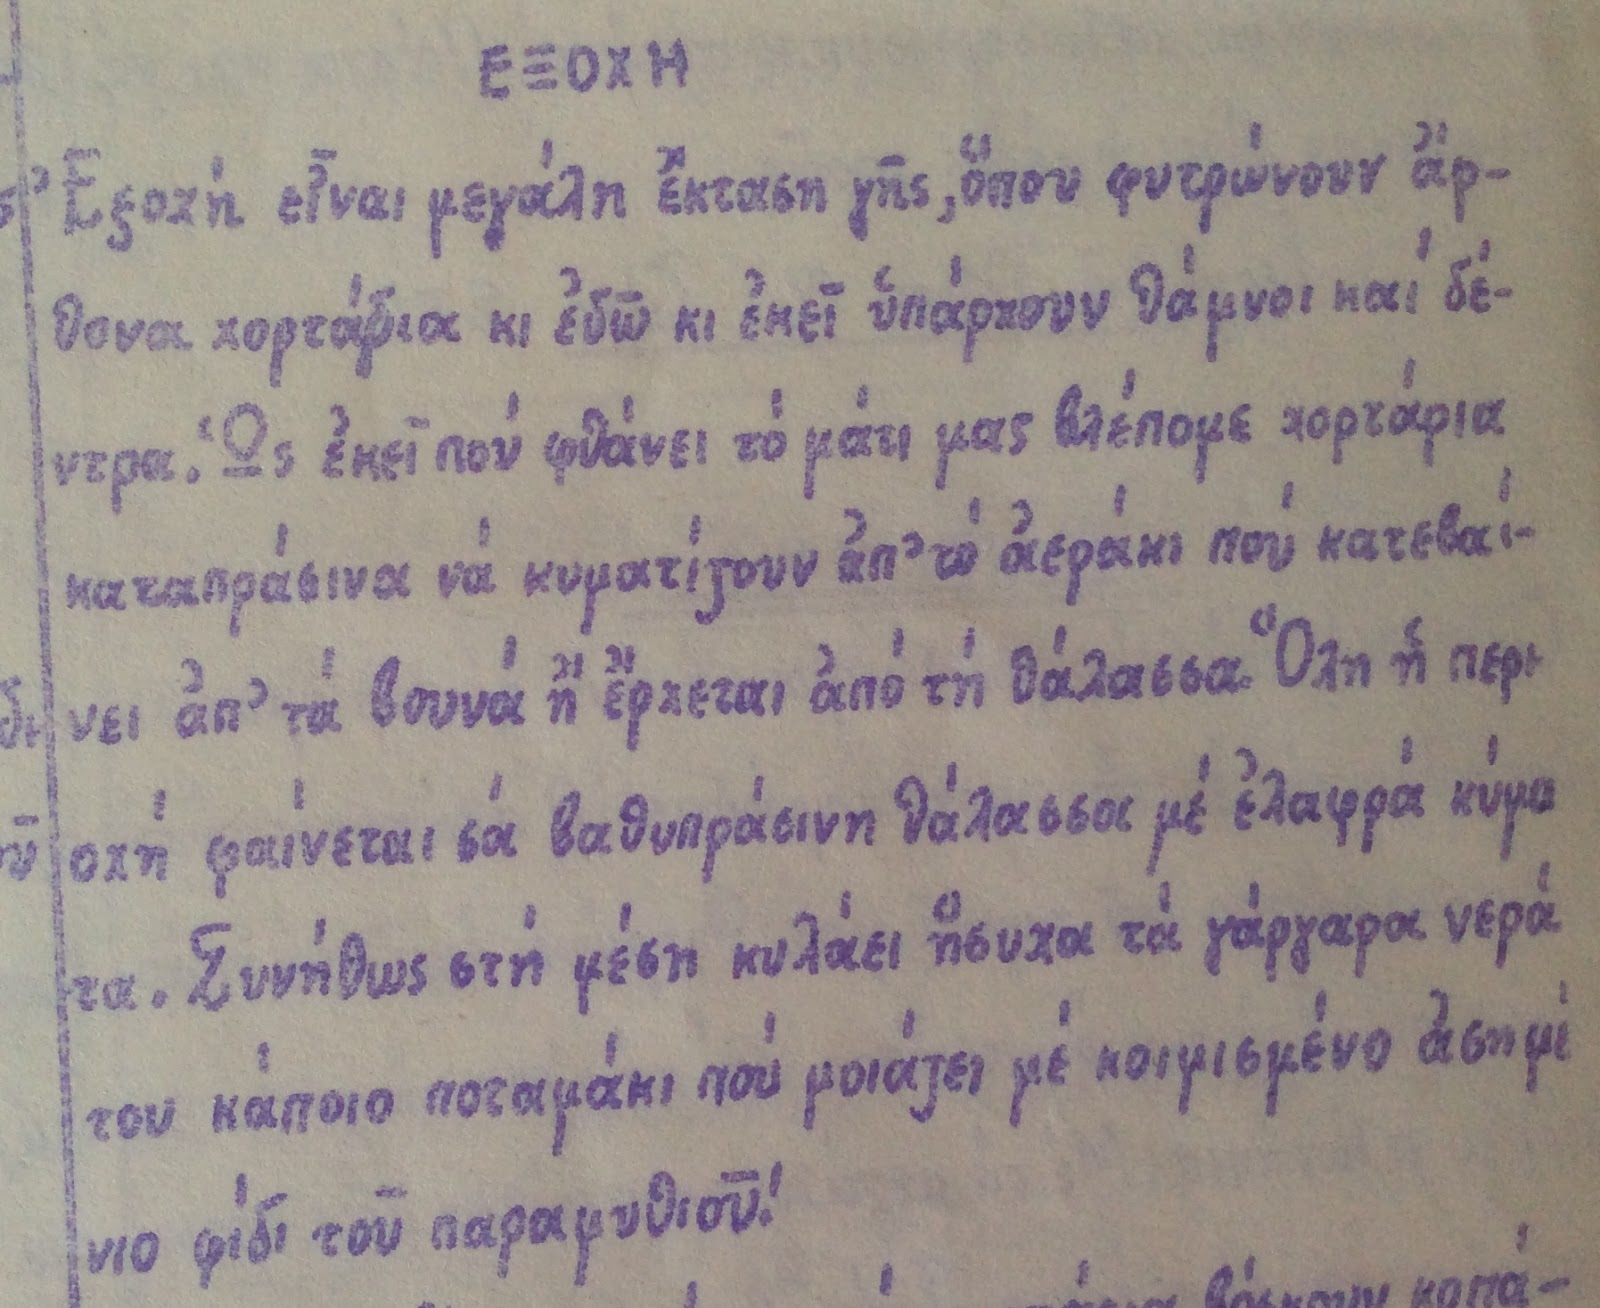 ΕΞΟΧΗ
Ἐξοχή εἶναι μεγάλη ἔκταση γῆς, ὅπου φυτρώνουν ἄφ-
θονα χορτάρια κι ἐδῶ κι ἐκεῖ ὑπάρχουν θάμνοι καί δέ-
ντρα. Ὡς ἐκεῖ πού φθάνει τό μάτι μας βλέπομε χορτάρια
καταπράσινα νά κυματίζουν ἀπ' τό ἀεράκι πού κατεβαί-
νει ἀπ' τά βουνά ἤ ἔρχεται ἀπό τή θάλασσα. Ὅλη ἡ περι
οχή φαίνεται σά βαθυπράσινη θάλασσα μέ ἐλαφρά κύμα
τα. Συνήθως στή μέση κυλάει ἥσυχα τά γάργαρα νερά
του κάποιο ποταμάκι πού μοιάζει μέ κοιμισμένο ἀσημέ
νιο φίδι τοῦ παραμυθιοῦ!
βόσκουν κοπά-